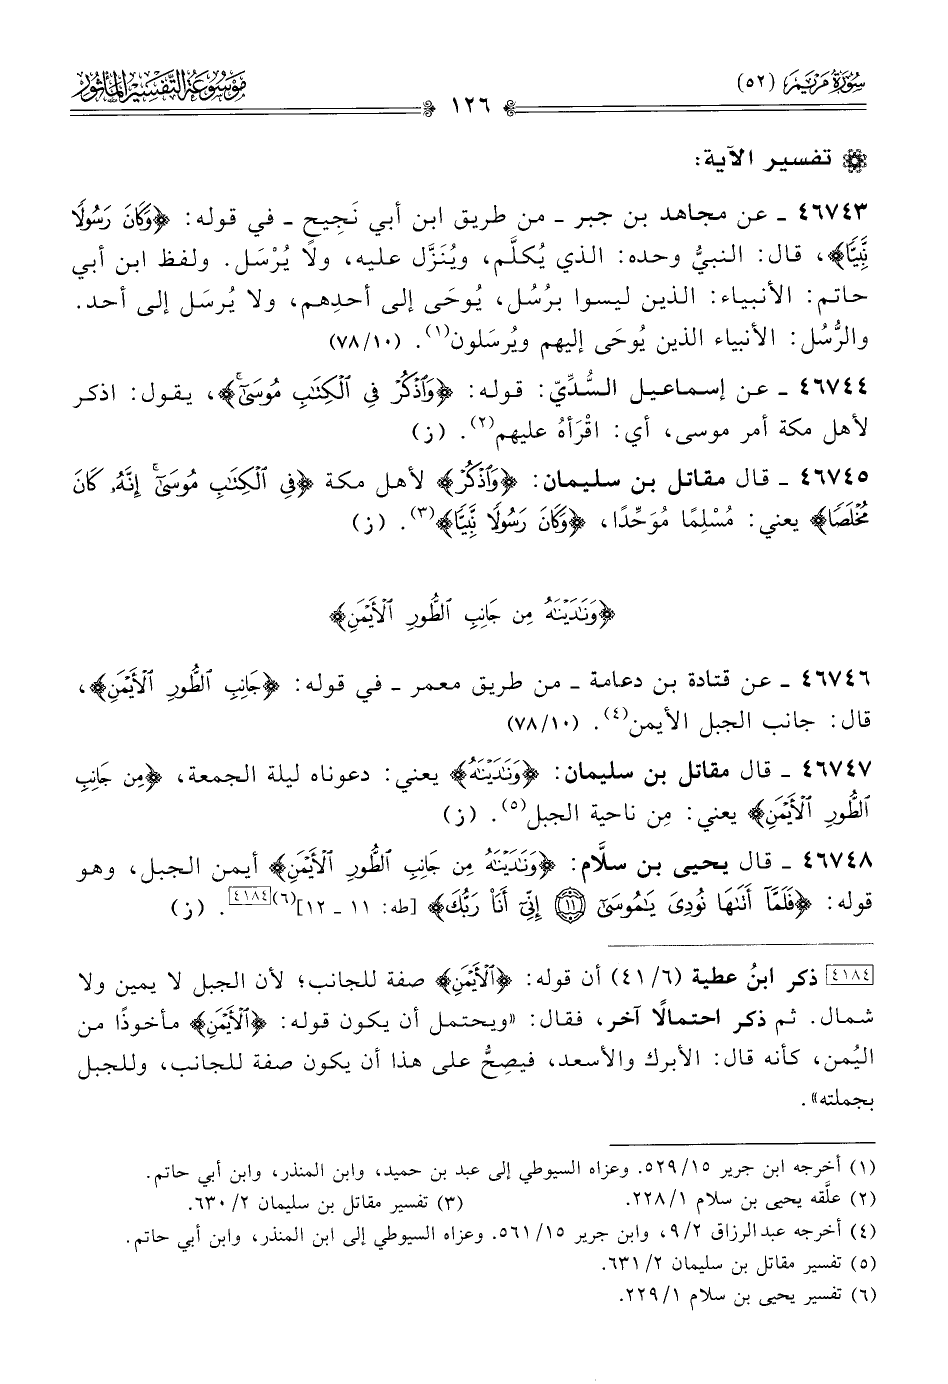 سُورَةُ مَرْيَمَ (٥٢)
١٢٦
مَوْسُوعَةُ التَّفْسِيرِ المَأْثُورِ
تفسير الآية:
٤٦٧٤٣ ـ عن مجاهد بن جبر ـ من طريق ابن أبي نَجِيح ـ في قوله: ﴿وَكَانَ رَسُولًا
نَّبِيًّا﴾، قال: النبيُّ وحده: الذي يُكلَّم، ويُنَزَّل عليه، ولا يُرْسَل. ولفظ ابن أبي
حاتم: الأنبياء: الذين ليسوا برُسُل، يُوحَى إلى أحدِهم، ولا يُرسَل إلى أحد.
والرُّسُل: الأنبياء الذين يُوحَى إليهم ويُرسَلون(١). (٧٨/١٠)
٤٦٧٤٤ ـ عن إسماعيل السُّدِّيّ: قوله: ﴿وَٱذْكُرْ فِى ٱلْكِتَٰبِ مُوسَىٰٓ﴾، يقول: اذكر
لأهل مكة أمر موسى، أي: اقْرَأهُ عليهم(٢). (ز)
٤٦٧٤٥ ـ قال مقاتل بن سليمان: ﴿وَٱذْكُرْ﴾ لأهل مكة ﴿فِى ٱلْكِتَٰبِ مُوسَىٰٓ إِنَّهُۥ كَانَ
مُخْلَصًا﴾ يعني: مُسْلِمًا مُوَحِّدًا، ﴿وَكَانَ رَسُولًا نَّبِيًّا﴾(٣). (ز)
﴿وَنَٰدَيْنَٰهُ مِن جَانِبِ ٱلطُّورِ ٱلْأَيْمَنِ﴾
٤٦٧٤٦ ـ عن قتادة بن دعامة ـ من طريق معمر ـ في قوله: ﴿جَانِبِ ٱلطُّورِ ٱلْأَيْمَنِ﴾،
قال: جانب الجبل الأيمن(٤). (٧٨/١٠)
٤٦٧٤٧ ـ قال مقاتل بن سليمان: ﴿وَنَٰدَيْنَٰهُ﴾ يعني: دعوناه ليلة الجمعة، ﴿مِن جَانِبِ
ٱلطُّورِ ٱلْأَيْمَنِ﴾ يعني: مِن ناحية الجبل(٥). (ز)
٤٦٧٤٨ ـ قال يحيى بن سلَّام: ﴿وَنَٰدَيْنَٰهُ مِن جَانِبِ ٱلطُّورِ ٱلْأَيْمَنِ﴾ أيمن الجبل، وهو
قوله: ﴿فَلَمَّآ أَتَىٰهَا نُودِىَ يَٰمُوسَىٰٓ ⑪ إِنِّىٓ أَنَا۠ رَبُّكَ﴾ [طه: ١١ ـ ١٢](٦)[٤١٨٤]. (ز)
[٤١٨٤] ذكر ابنُ عطية (٤١/٦) أن قوله: ﴿ٱلْأَيْمَنِ﴾ صفة للجانب؛ لأن الجبل لا يمين ولا
شمال. ثم ذكر احتمالًا آخر، فقال: «ويحتمل أن يكون قوله: ﴿ٱلْأَيْمَنِ﴾ مأخوذًا من
اليُمن، كأنه قال: الأبرك والأسعد، فيصِحُّ على هذا أن يكون صفة للجانب، وللجبل
بجملته».
(١) أخرجه ابن جرير ١٥/ ٥٢٩. وعزاه السيوطي إلى عبد بن حميد، وابن المنذر، وابن أبي حاتم.
(٢) علَّقه يحيى بن سلام ١/ ٢٢٨. (٣) تفسير مقاتل بن سليمان ٢/ ٦٣٠.
(٤) أخرجه عبدالرزاق ٢/ ٩، وابن جرير ١٥/ ٥٦١. وعزاه السيوطي إلى ابن المنذر، وابن أبي حاتم.
(٥) تفسير مقاتل بن سليمان ٢/ ٦٣١.
(٦) تفسير يحيى بن سلام ١/ ٢٢٩.